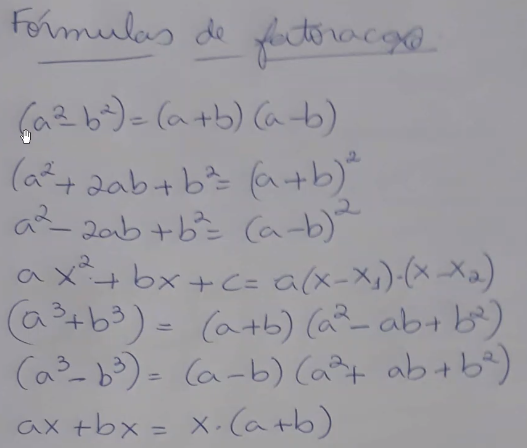 Fórmulas de fatoracao
(a² - b²) = (a+b) (a-b)
(a² + 2ab + b² = (a+b)²
a² - 2ab + b² = (a-b)²
ax² + bx + c = a(x-x₁)·(x-x₂)
(a³+b³) = (a+b) (a² - ab + b²)
(a³-b³) = (a-b) (a² + ab + b²)
ax + bx = x·(a+b)